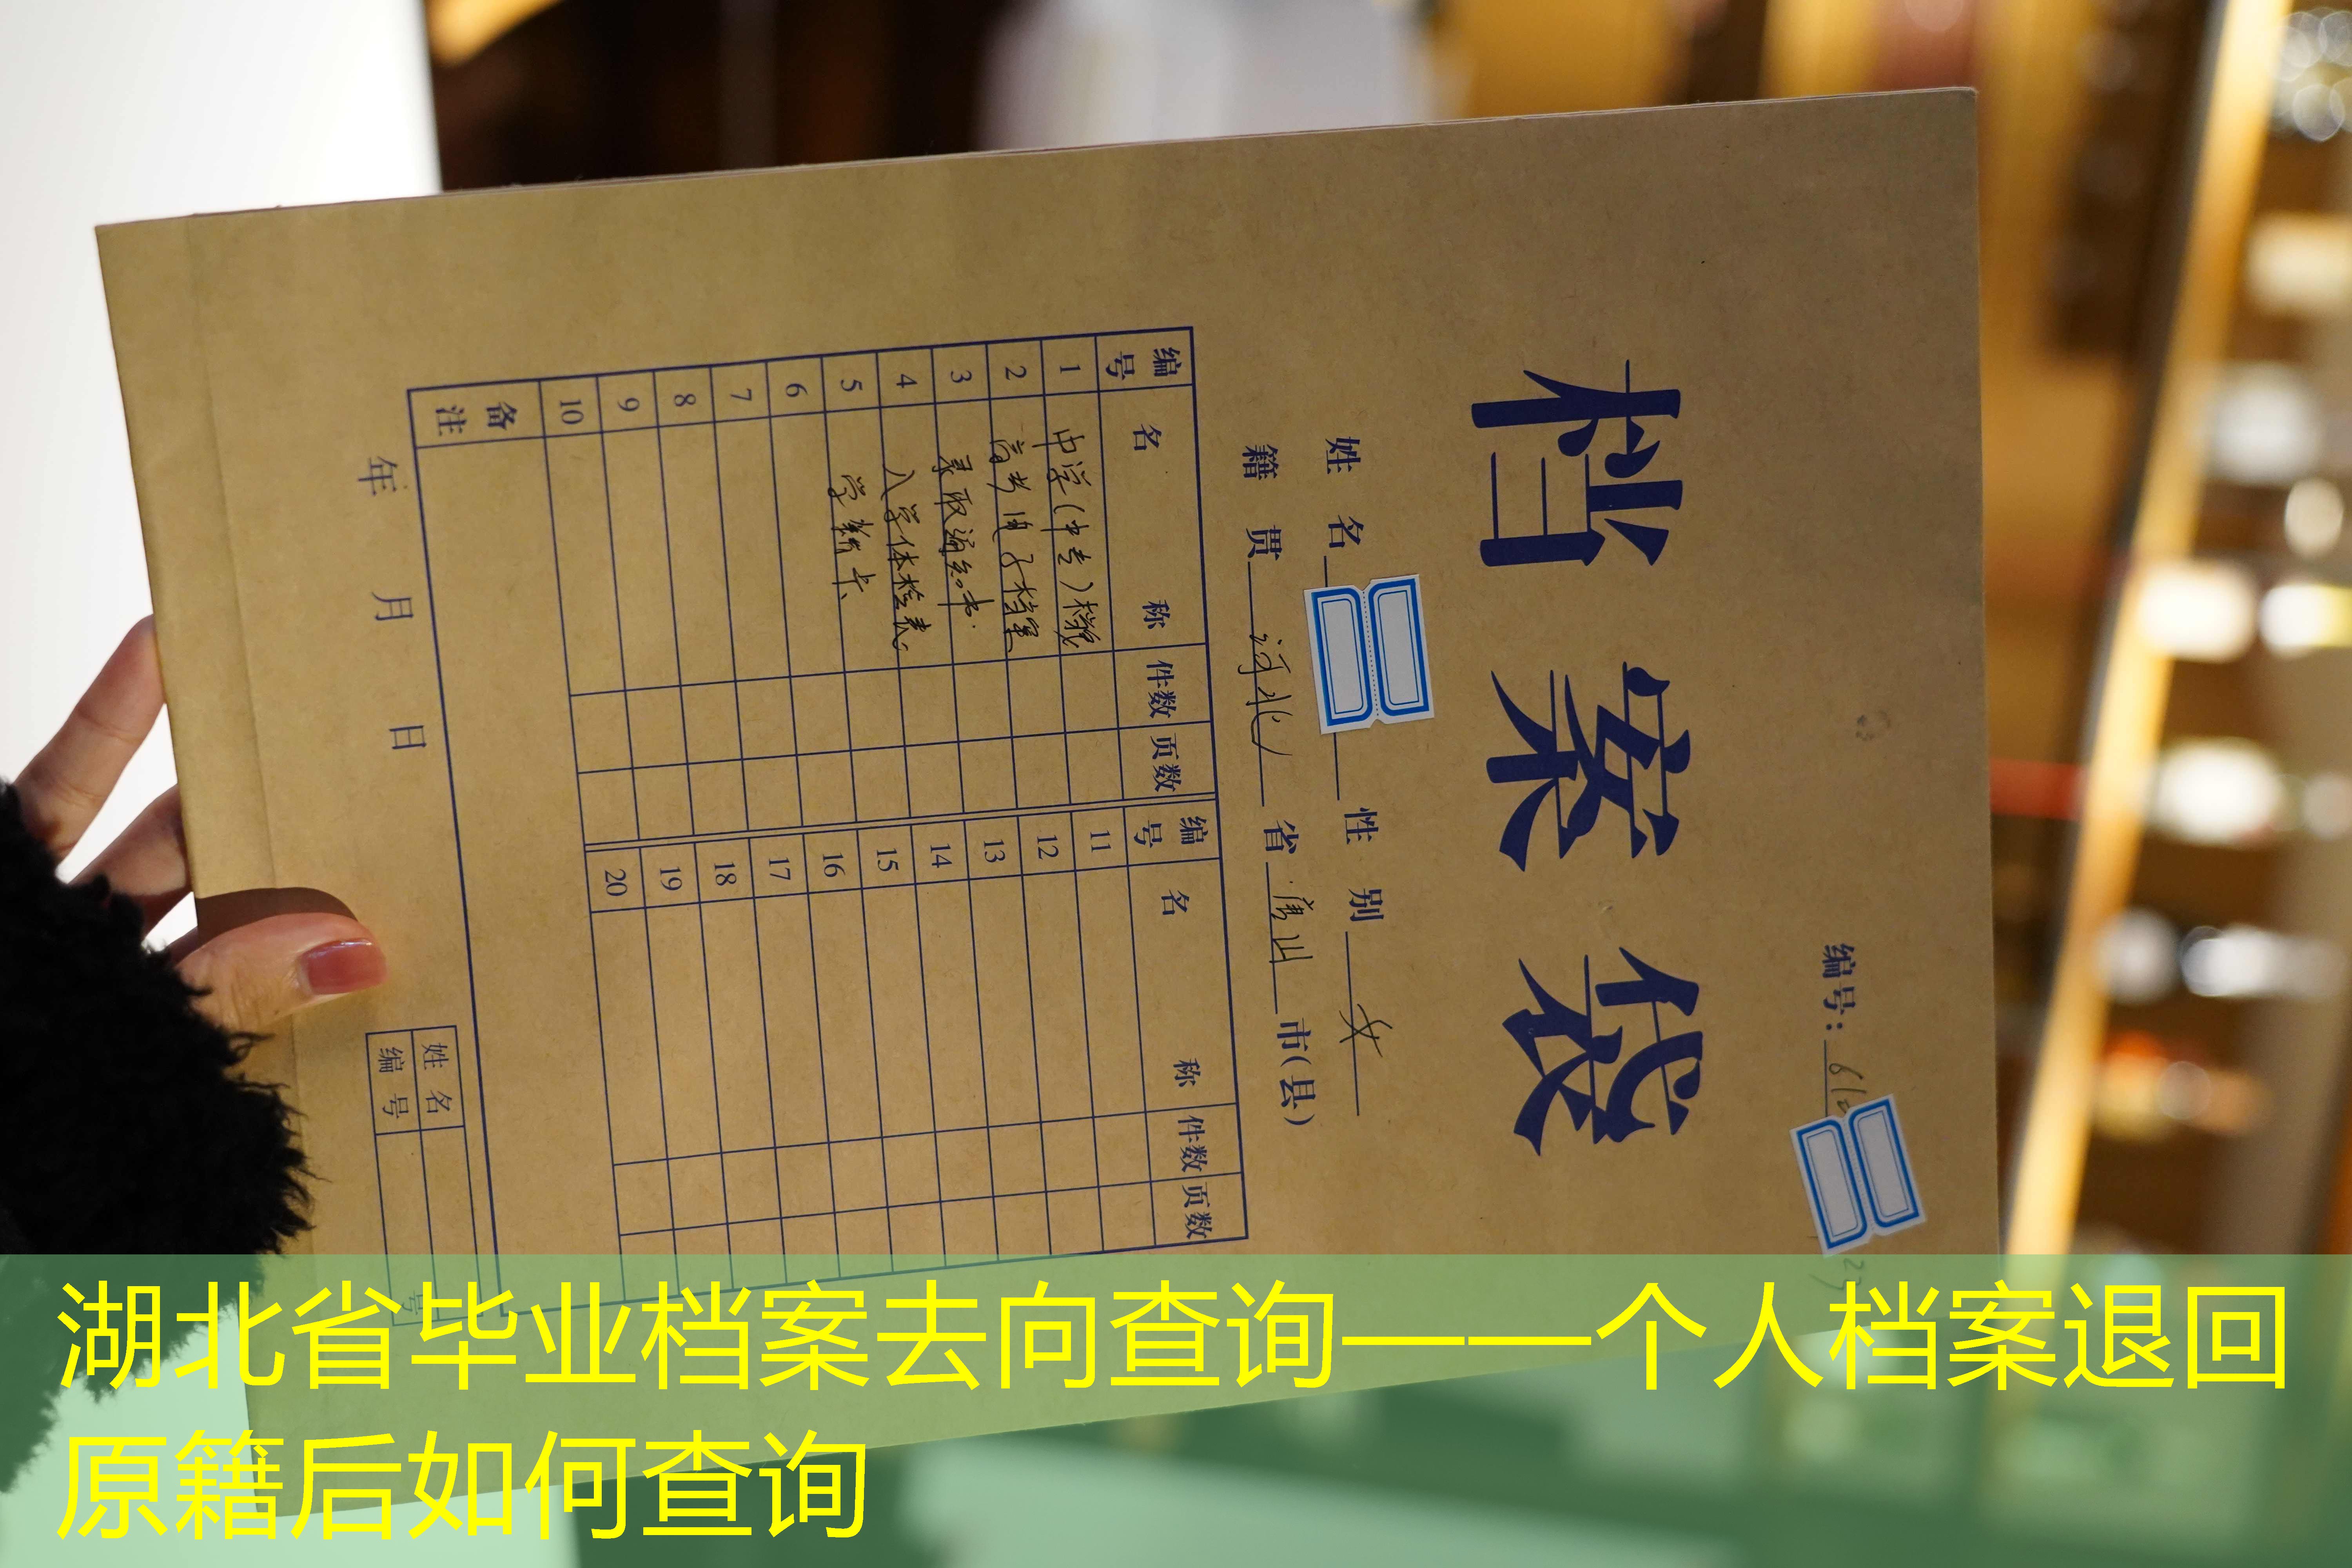 编号: 61
档案袋
姓名 性别 女
籍贯 河北 省 唐山 市(县)
编号 名称 件数 页数 编号 名称 件数 页数
1 中学(中专)档案 11
2 高考电子档案 12
3 录取通知书. 13
4 入学体检表 14
5 学籍卡 15
6 16
7 17
8 18
9 19
10 20
备注
年 月 日
姓名
编号 号
湖北省毕业档案去向查询——个人档案退回
原籍后如何查询